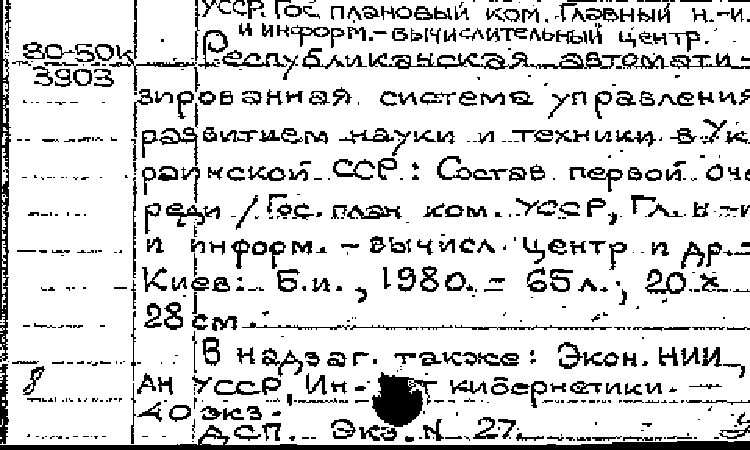 УССР. Гос. плановый ком. Главный н.-и.
и информ.-вычислительный центр.
80-50к Республиканская автомати-
3903
зированная система управления
развитием науки и техники в Ук
раинской ССР.: Состав первой оче
реди / Гос. план ком. УССР, Гл. н-и
и информ. - вычисл. центр и др. -
Киев: Б.и., 1980. - 65 л.; 20 х
28 см.
В надзаг. также: Экон. НИИ,
АН УССР, Ин-т кибернетики. —
40 экз.
ДСП. Экз. N 27.